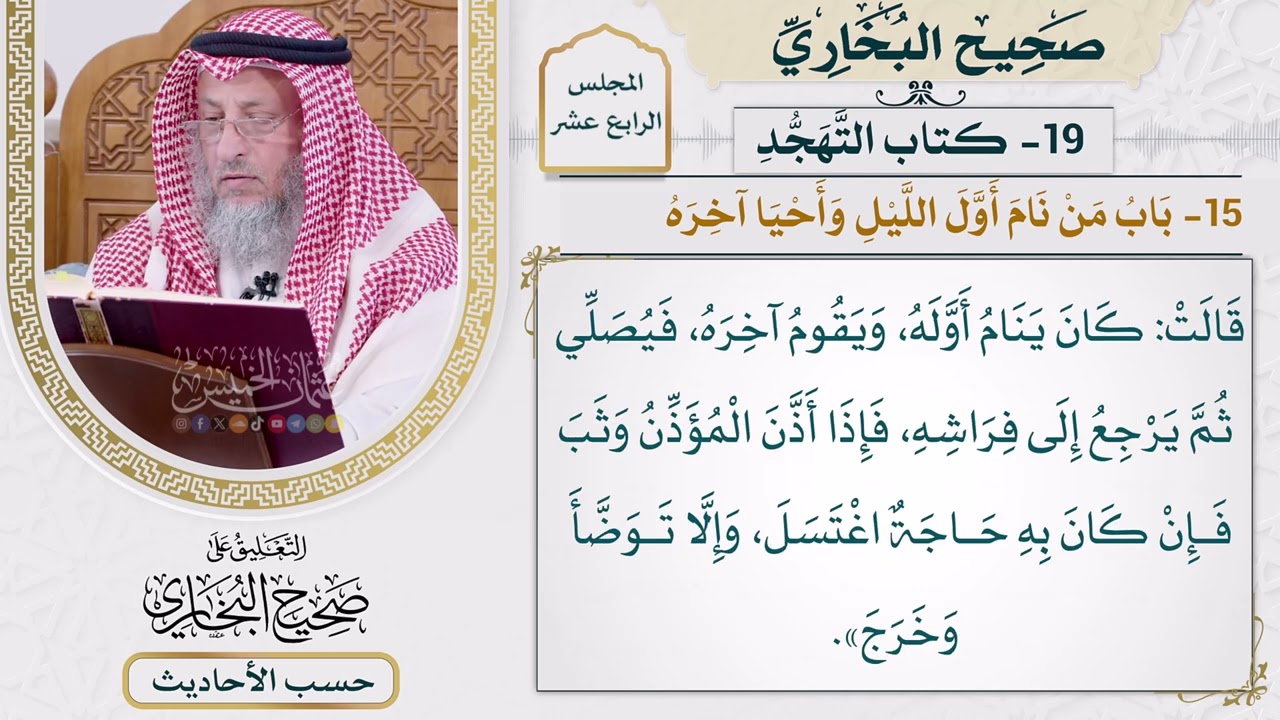 صَحِيح البُخَارِيِّ
المجلس
الرابع عشر
19- كتاب التَّهَجُّدِ
15- بَابُ مَنْ نَامَ أَوَّلَ اللَّيْلِ وَأَحْيَا آخِرَهُ
قَالَتْ: كَانَ يَنَامُ أَوَّلَهُ، وَيَقُومُ آخِرَهُ، فَيُصَلِّي
ثُمَّ يَرْجِعُ إِلَى فِرَاشِهِ، فَإِذَا أَذَّنَ الْمُؤَذِّنُ وَثَبَ
فَإِنْ كَانَ بِهِ حَاجَةٌ اغْتَسَلَ، وَإِلَّا تَوَضَّأَ
وَخَرَجَ».
عثمان الخميس
التَّعْلِيقُ عَلَى
صَحِيحِ البُخَارِي
حسب الأحاديث